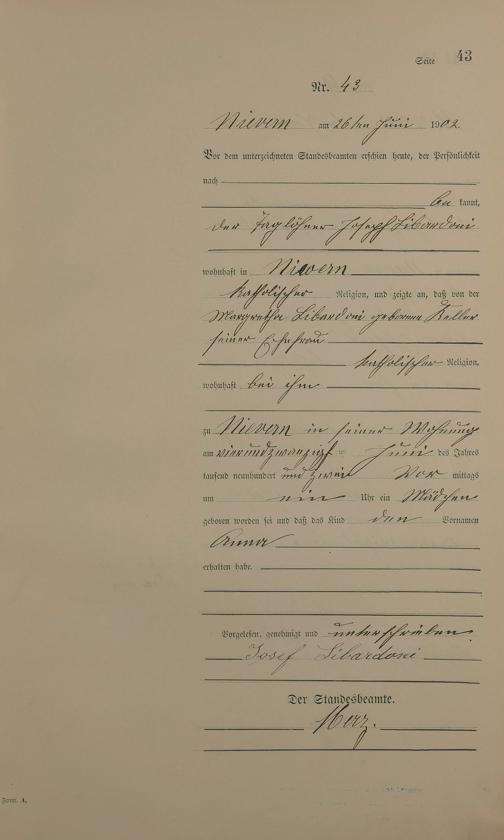 Seite 43
Nr. 43
Nievern am 26ten Juni 1902
Vor dem unterzeichneten Standesbeamten erschien heute, der Persönlichkeit
nach
be kannt,
der Taglöhner Joseph Libardoni
wohnhaft in Nievern
katholischer Religion, und zeigte an, daß von der
Margretha Libardoni geborene Keller
seiner Ehefrau
katholischer Religion,
wohnhaft bei ihm
zu Nievern in seiner Wohnung
am vierundzwanzigsten Juni des Jahres
tausend neunhundert und zwei Vor mittags
um ein Uhr ein Mädchen
geboren worden sei und daß das Kind den Vornamen
Anna
erhalten habe.
Vorgelesen, genehmigt und unterschrieben.
Josef Libardoni
Der Standesbeamte.
Herz.
Form. A.